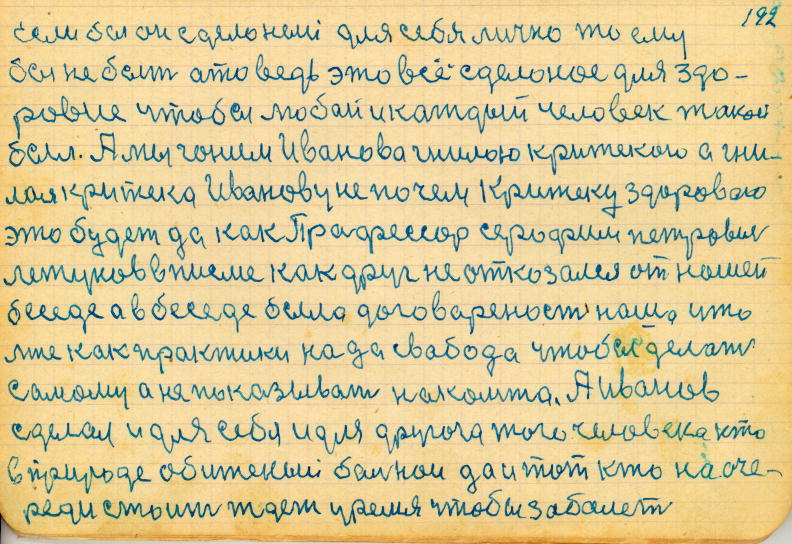 192
если бы он сделонеі для себя лично то ему
бы не быт ато ведь это всё сделоное для здо-
ровие чтобы любаи и каждый человек такои
быил. А мы гоним Иванова гнилою критекою а гни-
лая критека Иванову не по чем Критеку здороваю
это будет да как Прафессор серофим петрович
летуков в писме как друг не откозался от нашей
беседе а в беседе была договареност наша что
мне как практики нада свабода чтобы делат
самому а не показыват накомта. А иванов
сделал и для себя и для другога того человека кто
в природе обитекыі болнои да и тот кто на оче-
реди стоит ждет уремя чтобы заболет